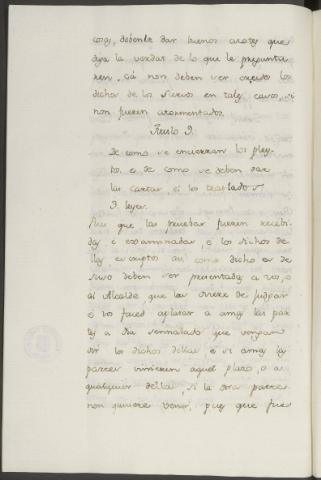 cosas, debenle dar buenos azotes que
diga la verdat de lo que le pregunta
ren, cá non deben ser creidos los
dichos de los siervos en tales casos, si
non fueren atormentados.
Titulo 9.
De como se encierran los pley
tos, e de como se deben dar
las cartas, e los traslados.
9. leyes.
Pues que las pruebas fueren recebi
das é examinadas, é los dichos de
llos escriptos asi como dicho es de
suso deben ser presentadas a vos, o
al Alcalde que las oviere de judgar
é vos faced aplazar a amas las par
tes a dia sennalado que vengan
oir los dichos dellos, e si amas las
partes vinieren aquel plazo, o a
qualquier della, si la otra parte
non quisiere venir, pues que fue